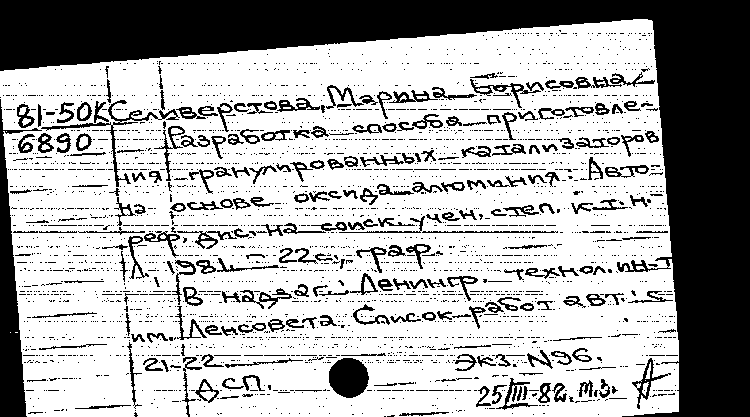 81-50К Селиверстова, Марина Борисовна
6890 Разработка способа приготовле-
ния гранулированных катализаторов
на основе оксида алюминия: Авто-
реф. дис. на соиск. учен. степ. к.т.н.-
Л., 1981. - 22 с., граф.
В надзаг.: Ленингр. технол. ин-т
им. Ленсовета. Список работ авт.: с.
21-22.
Экз. N96.
ДСП.
25/III-82. т.з.